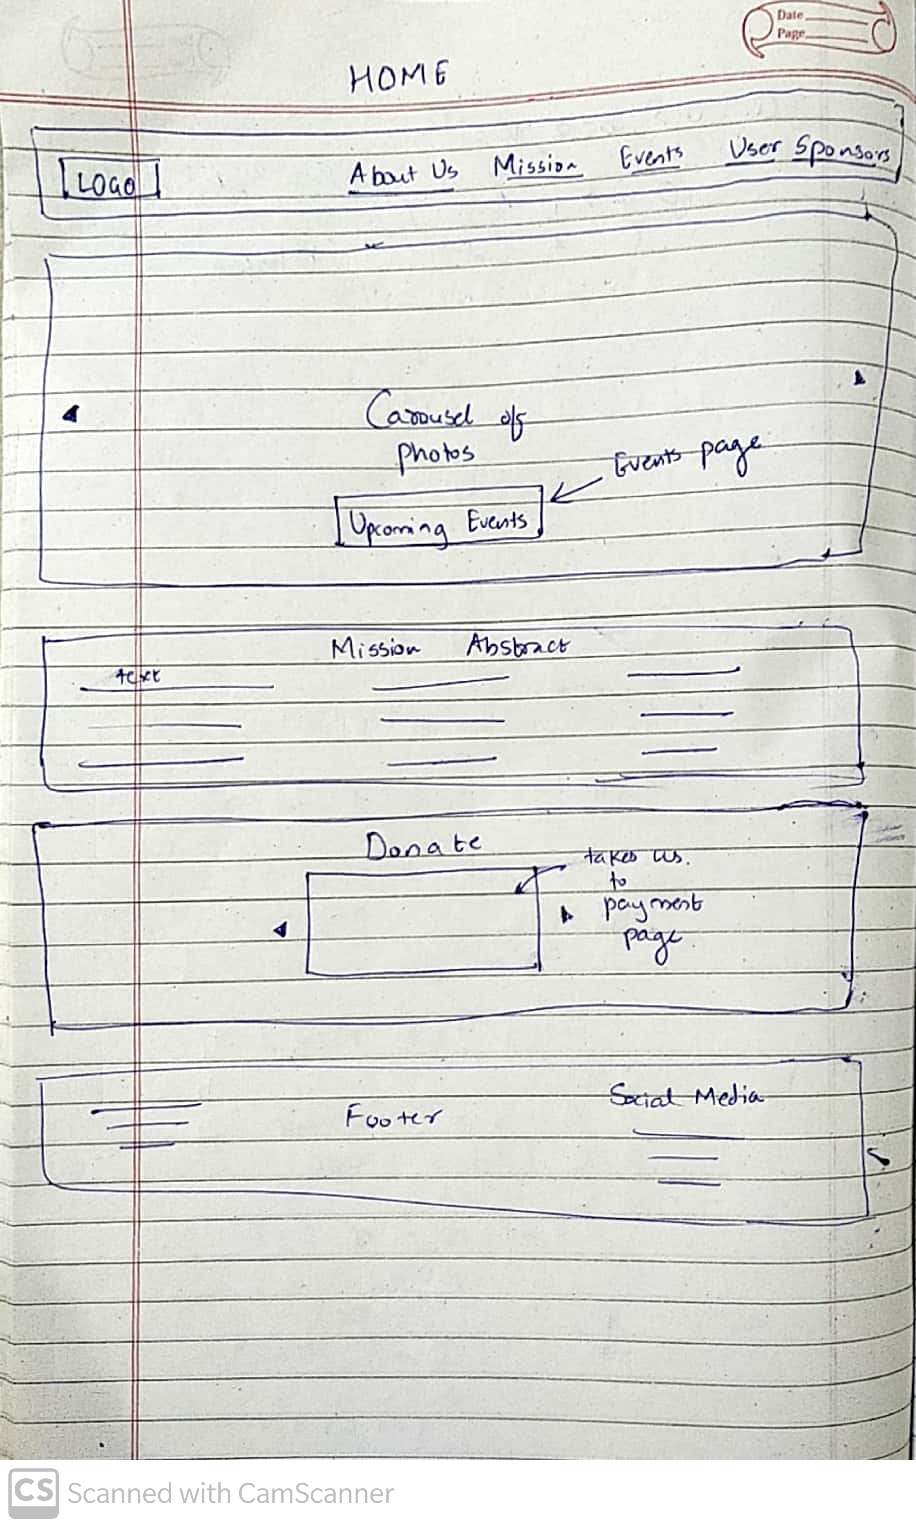 Date
Page
HOME
LOGO About Us Mission Events User Sponsors
Carousel of
photos
Events page
Upcoming Events
Mission Abstract
text
Donate
takes us.
to
payment
page
Footer
Social Media
CS Scanned with CamScanner